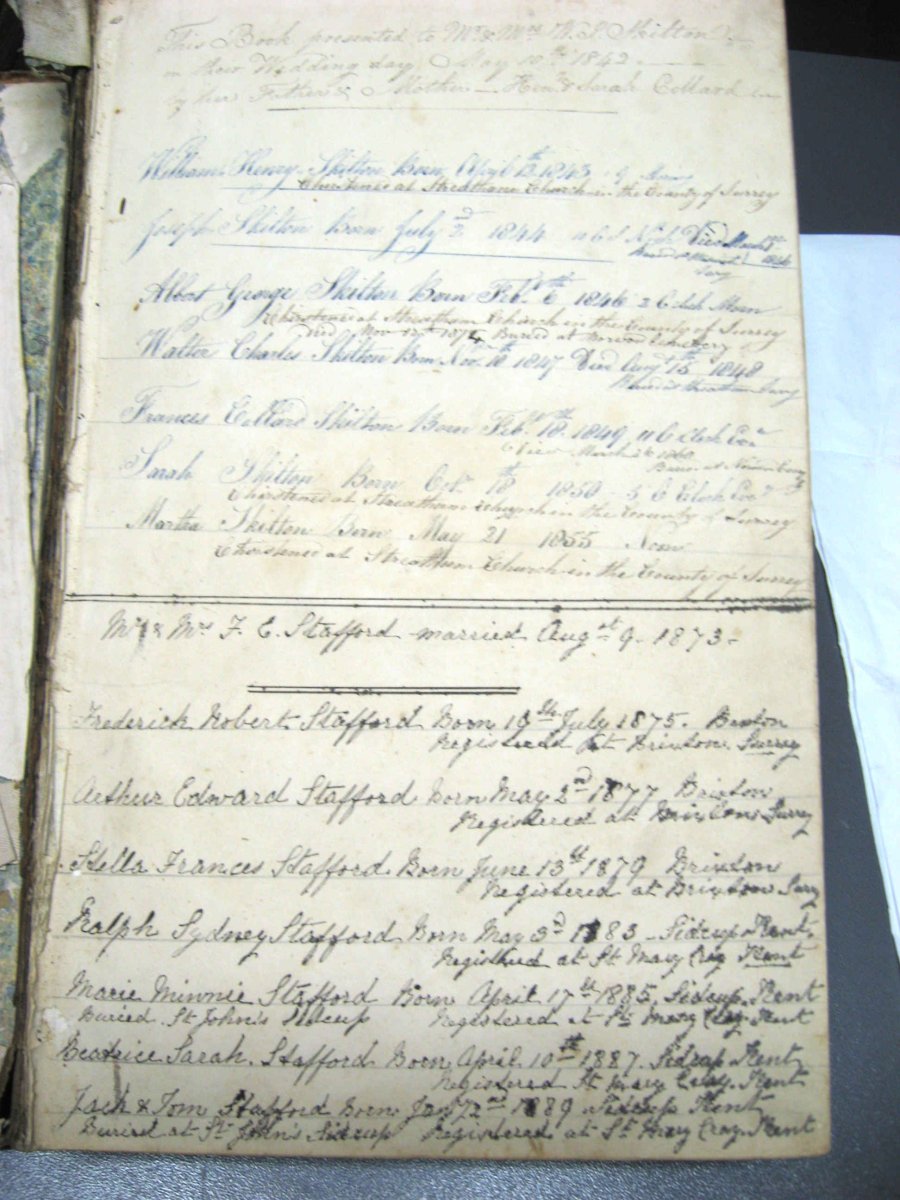 This Book presented to Mr & Mrs W. S. Skilton
on their Wedding day, May 10th 1842
by her Father & Mother Sarah Collard
William Henry Skilton Born 1843
Christened at Streatham Church in the County of Surrey
Joseph Skilton Born July 2nd 1844 Died
Albert George Skilton Born Feby 6th 1846 2 Clock Morn
Christened at Streatham Church in the County of Surrey
died Nov 1874 Buried at Norwood Cemetery
Walter Charles Skilton Born Nov. 18th 1847 Died Augt 15th 1848
Frances Collard Skilton Born Feby 18th 1849
Sarah Skilton Born Oct. 18th 1850
Christened at Streatham Church in the County of Surrey
Martha Skilton Born May 21 1855 Noon
Christened at Streatham Church in the County of Surrey
Mr & Mrs F. E. Stafford married Augst 9 - 1873 -
Frederick Robert Stafford Born July 1875.
Registered at Brixton Surrey
Arthur Edward Stafford Born May 2nd 1877 Brixton
Registered at Brixton Surrey
Stella Frances Stafford Born June 13th 1879 Brixton
Registered at Brixton Surry
Ralph Sydney Stafford Born May 3d 1883 - Sidcup Kent,
Registered at St Mary Cray Kent
Marie Minnie Stafford Born April 17th 1885, Sidcup, Kent
Buried St John's Sidcup Registered at St Mary Cray Kent
Beatrice Sarah. Stafford Born April 10th 1887. Sidcup Kent,
Registered St Mary Cray. Kent
Jack & Tom Stafford Born 1889 Sidcup Kent
Buried at St John's Sidcup Registered at St Mary Cray. Kent